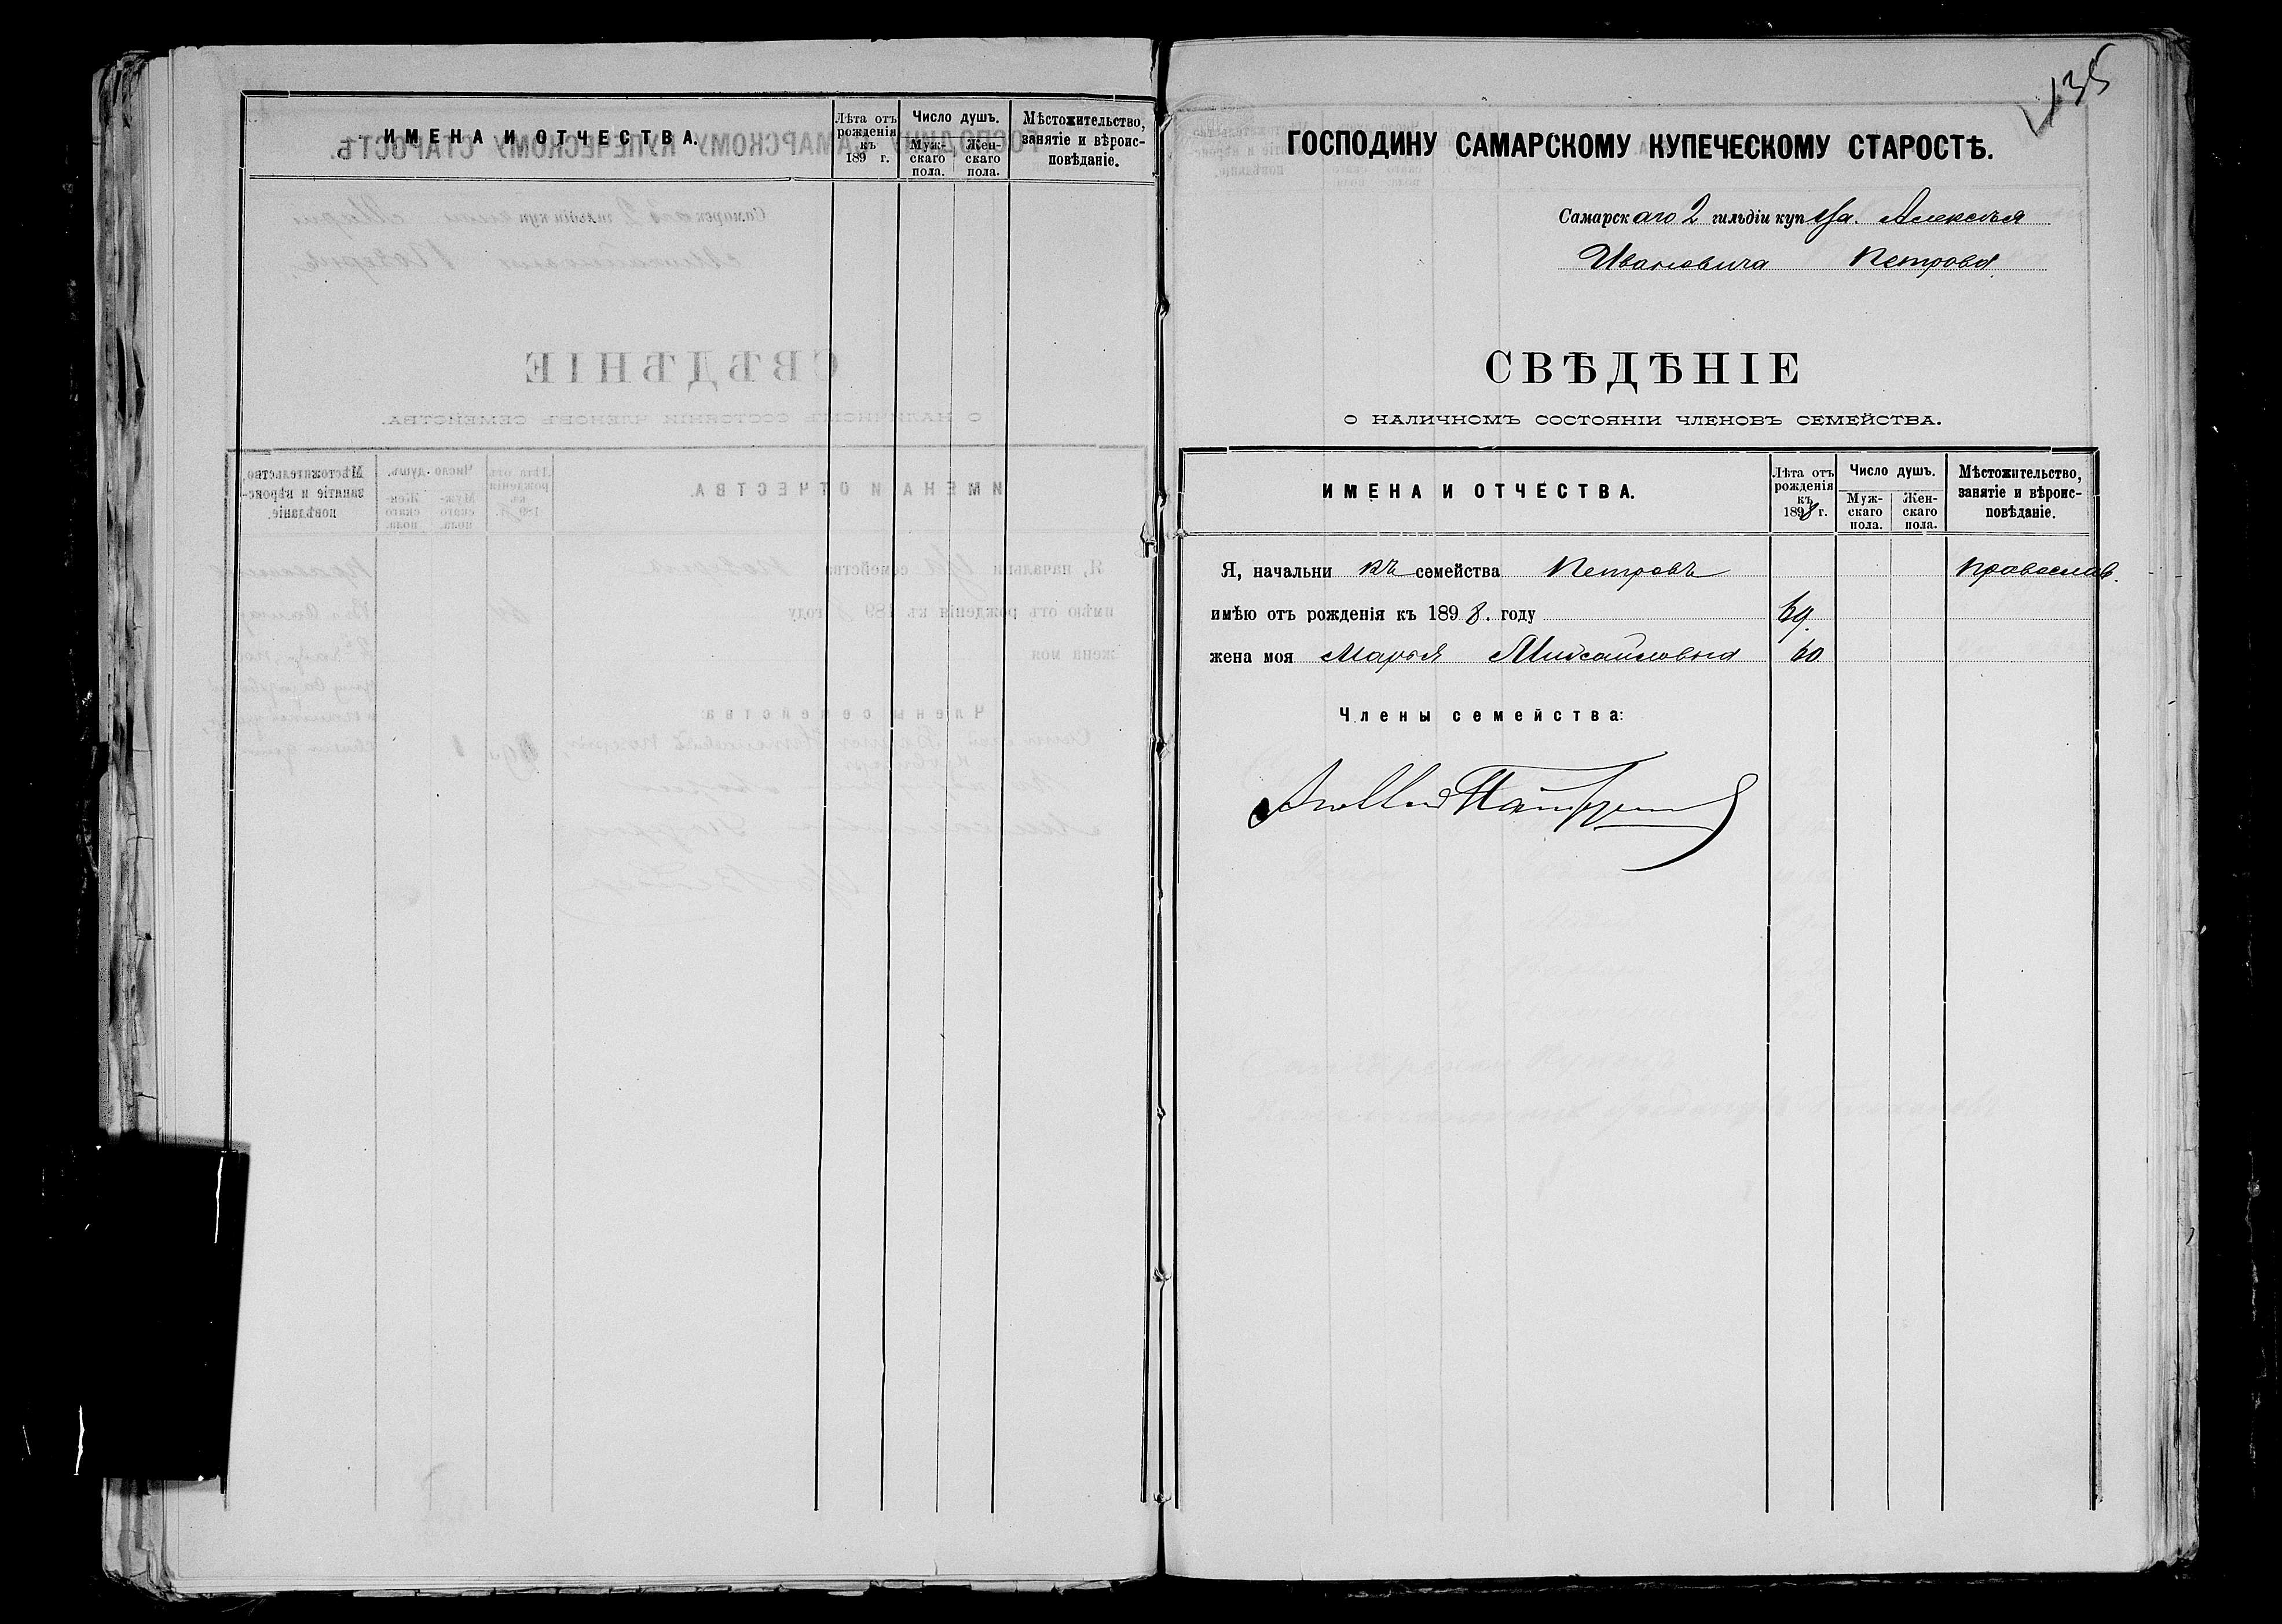 ИМЕНА И ОТЧЕСТВА.
Лѣта отъ рожденія къ 189 г.
Число душъ.
Муж-скаго пола.
Жен-скаго пола.
Мѣстожительство, занятіе и вѣроис-повѣданіе.
135
ГОСПОДИНУ САМАРСКОМУ КУПЕЧЕСКОМУ СТАРОСТѢ.
Самарскаго 2 гильдіи купца. Алексѣя
Ивановича Петрова.
СВѢДѢНІЕ
О НАЛИЧНОМЪ СОСТОЯНІИ ЧЛЕНОВЪ СЕМЕЙСТВА.
ИМЕНА И ОТЧЕСТВА.
Лѣта отъ рожденія къ 1898 г.
Число душъ.
Муж-скаго пола.
Жен-скаго пола.
Мѣстожительство, занятіе и вѣроис-повѣданіе.
Я, начальникъ семейства Петровъ православ.
имѣю отъ рожденія къ 1898. году 69.
жена моя Марья Михайловна 60
Члены семейства: